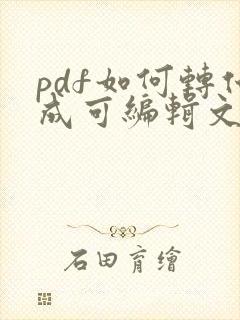 pdf如何轉
成可編輯文
石田育繪